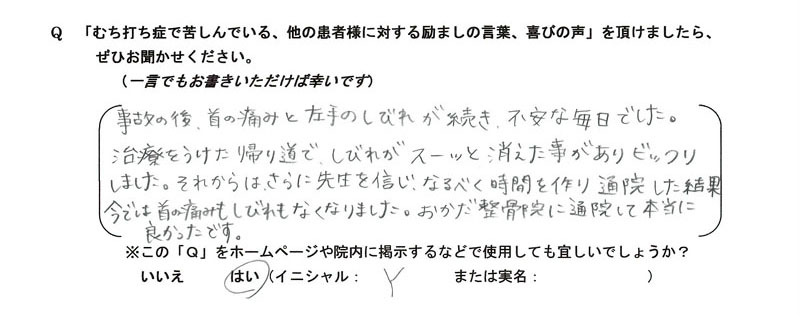 Q 「むち打ち症で苦しんでいる、他の患者様に対する励ましの言葉、喜びの声」を頂けましたら、
ぜひお聞かせください。
（一言でもお書きいただけば幸いです）
事故の後、首の痛みと左手のしびれが続き、不安な毎日でした。
治療をうけた帰り道で、しびれがスーッと消えた事がありビックリ
しました。それからは、さらに先生を信じ、なるべく時間を作り通院した結果
今では首の痛みもしびれもなくなりました。おかだ整骨院に通院して本当に
良かったです。
※この「Q」をホームページや院内に掲示するなどで使用しても宜しいでしょうか？
いいえ はい（イニシャル： Y または実名： ）